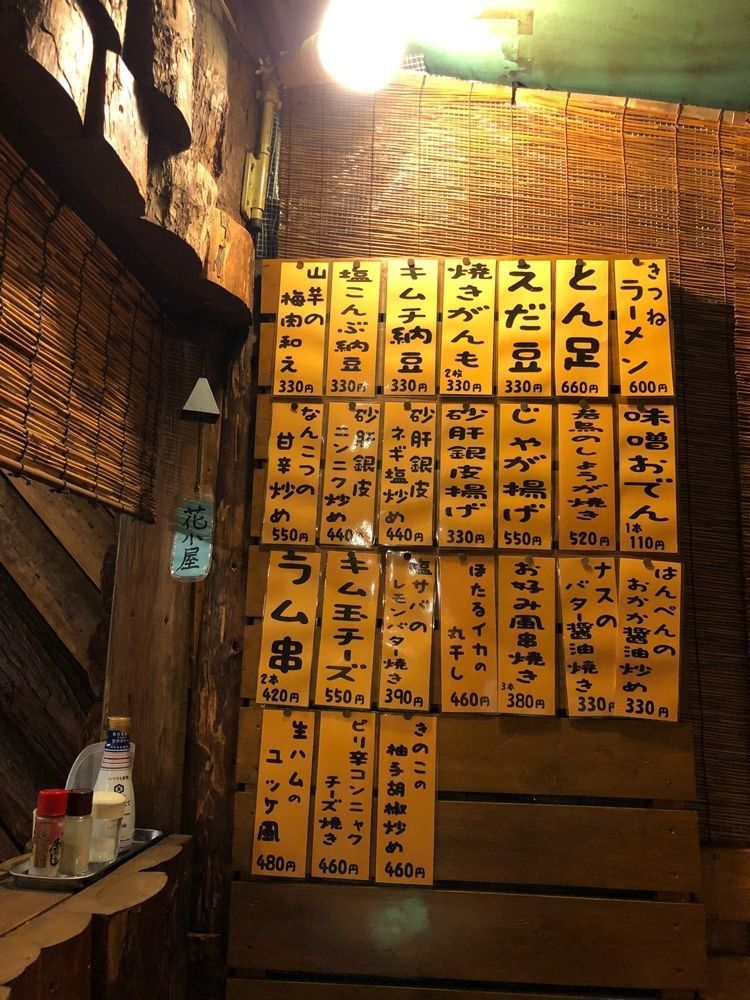 きつね
ラーメン
600円
とん足
660円
えだ豆
330円
焼きがんも
2枚
330円
キムチ納豆
330円
塩こんぶ納豆
330円
山芋の
梅肉和え
330円
味噌おでん
1本
110円
若鳥のしょうが焼き
520円
じゃが揚げ
550円
砂肝銀皮揚げ
330円
砂肝銀皮
ネギ塩炒め
440円
砂肝銀皮
ニンニク炒め
440円
なんこつの
甘辛炒め
550円
はんぺんの
おかか醤油炒め
330円
ナスの
バター醤油焼き
330円
お好み風串焼き
3本
380円
ほたるイカの
丸干し
460円
塩サバの
レモンバター焼き
390円
キム玉チーズ
550円
ラム串
2本
420円
きのこの
柚子胡椒炒め
460円
ピリ辛コンニャク
チーズ焼き
460円
生ハムの
ユッケ風
480円
花小屋